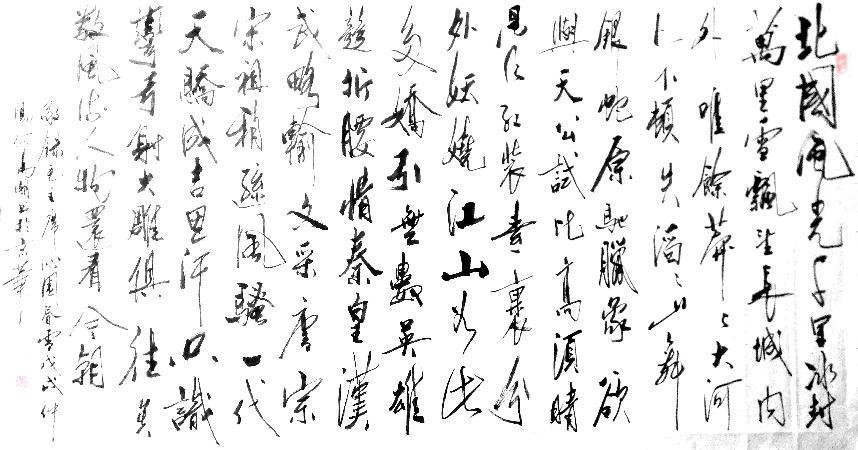 北國風光千里冰封
萬里雪飄望長城內
外唯餘莽々大河
上下頓失滔々山舞
銀蛇原馳臘象欲
與天公試比高須晴
紅裝素裹分
外妖嬈江山如此
多嬌引無數英雄
競折腰惜秦皇漢
武略輸文采唐宗
宋祖稍遜風騷一代
天驕成吉思汗只識
彎弓射大雕俱往矣
數風流人物還看今朝
敬錄毛主席沁園春雪戊戌仲
書於京華